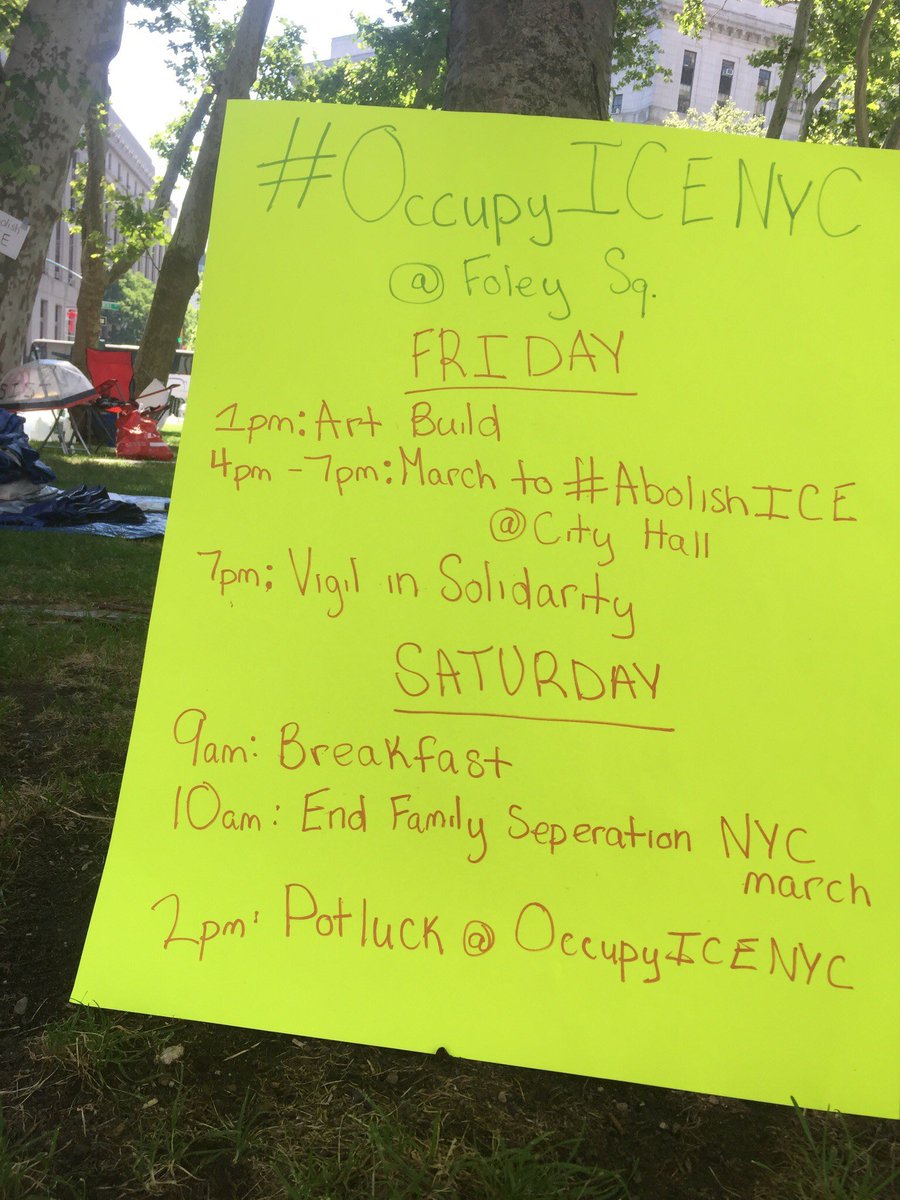 #OccupyICENYC
@ Foley Sq.
FRIDAY
1pm: Art Build
4pm - 7pm: March to #AbolishICE
@ City Hall
7pm: Vigil in Solidarity
SATURDAY
9am: Breakfast
10am: End Family Seperation NYC
march
2pm: Potluck @ OccupyICENYC